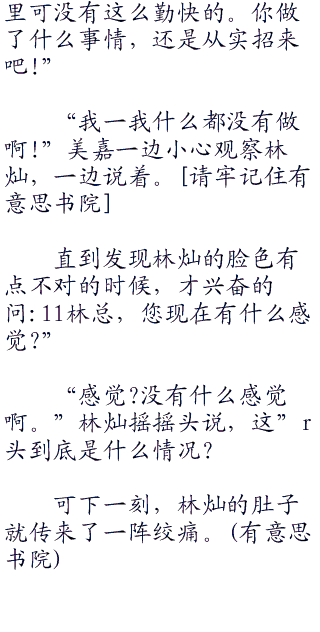 里可没有这么勤快的。你做
了什么事情，还是从实招来
吧!”
“我一我什么都没有做
啊!”美嘉一边小心观察林
灿，一边说着。[请牢记住有
意思书院]
直到发现林灿的脸色有
点不对的时候，才兴奋的
问:11林总，您现在有什么感
觉?”
“感觉?没有什么感觉
啊。”林灿摇摇头说，这”r
头到底是什么情况?
可下一刻，林灿的肚子
就传来了一阵绞痛。(有意思
书院)